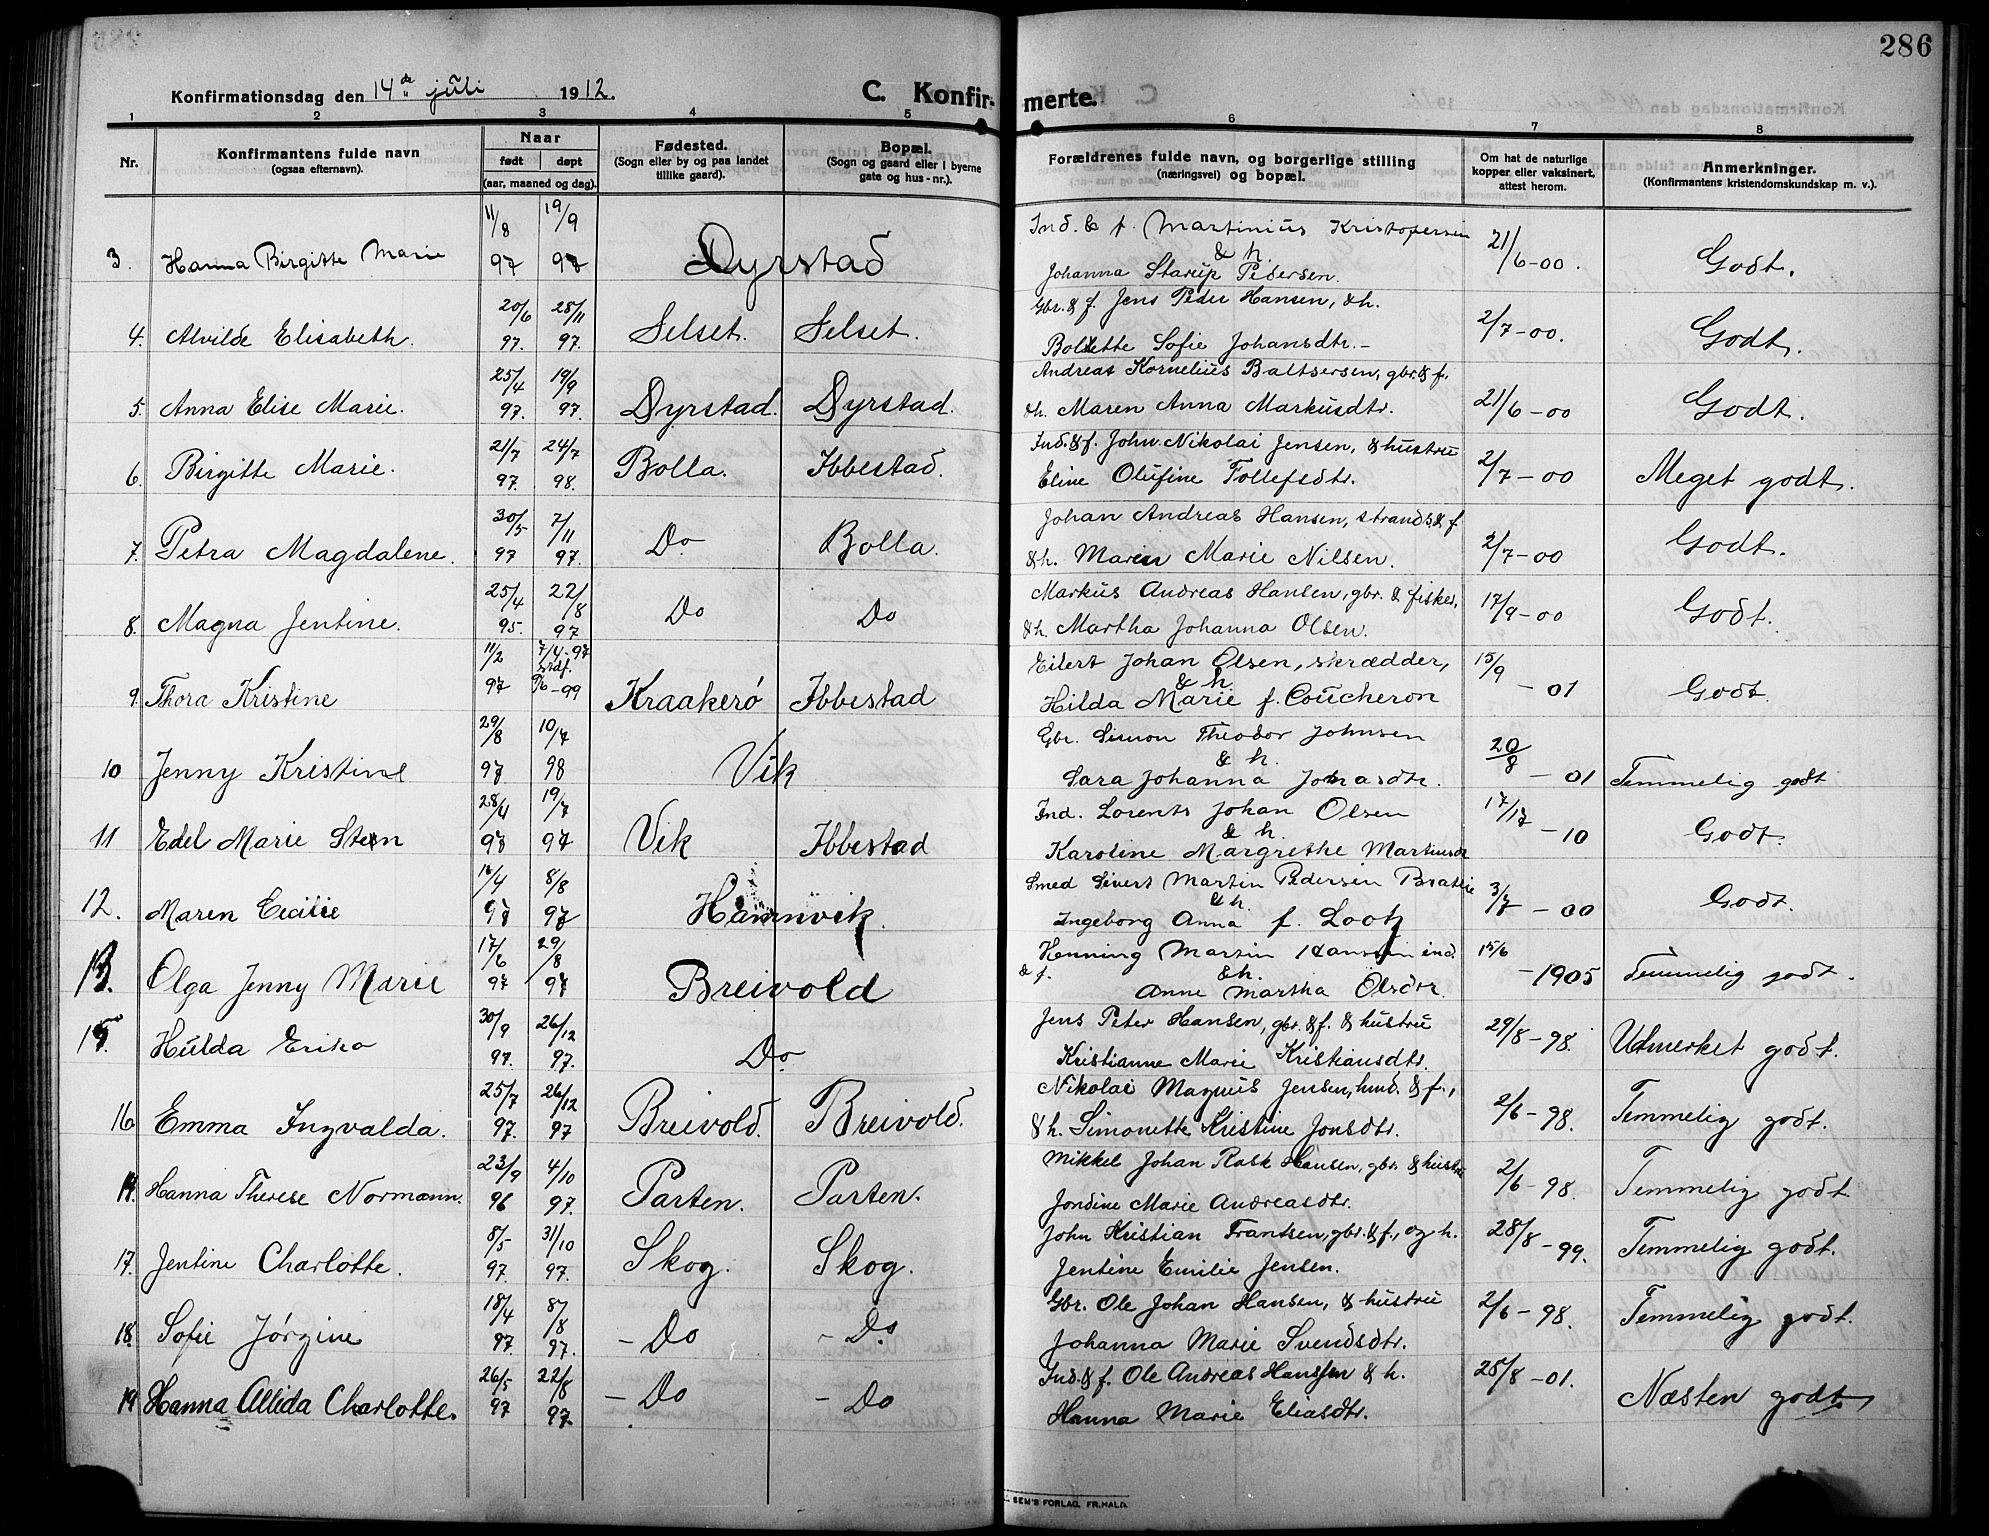 286
Konfirmationsdag den 14de juli 1912.
C. Konfir- merte.
1 2 3 4 5 6 7 8
Nr.
Konfirmantens fulde navn
(ogsaa efternavn).
Naar
født døpt
(aar, maaned og dag).
Fødested.
(Sogn eller by og paa landet
tillike gaard).
Bopæl.
(Sogn og gaard eller i byerne
gate og hus-nr.).
Forældrenes fulde navn, og borgerlige stilling
(næringsvei) og bopæl.
Om hat de naturlige
kopper eller vaksinert,
attest herom.
Anmerkninger.
(Konfirmantens kristendomskundskap m. v.).
11/8 19/9 Ind. & f. Martinius Kristofersen
3. Hanna Birgitte Marie 97 97 Dyrstad & h. 21/6-00. Godt.
Johanna Starup Pedersen.
20/6 28/11 Gbr. & f. Jens Peder Hansen, & h.
4. Alvilde Elisabeth. 97. 97. Selset. Selset. Bolette Sofie Johansdtr.- 2/7-00. Godt.
25/4 19/9 Andreas Kornelius Baltsersen, gbr. & f.
5. Anna Elise Marie. 97. 97. Dyrstad. Dyrstad. & h. Maren Anna Markusdtr. 21/6-00 Godt.
21/7 24/7 Ind. & f. John Nikolai Jensen, & hustru
6. Birgitte Marie. 97. 98. Bolla. Ibbestad. Eline Olufine Tollefsdtr. 2/7-00 Meget godt.
30/5 7/11 Johan Andreas Hansen, strands. & f.
7. Petra Magdalene. 97 97. Do Bolla. & h. Maren Marie Nilsen. 2/7-00 Godt.
25/4 22/8 Markus Andreas Hansen, gbr. & fisker,
8. Magna Jentine. 95. 97 Do Do & h. Martha Johanna Olsen. 17/9-00 Godt.
11/2 7/4-97 Eilert Johan Olsen, skrædder, 15/9
stdf.
9. Thora Kristine 97 -99 Kraakerø Ibbestad & h. -01 Godt.
Hilda Marie f. Coucheron
29/8 10/7 Gbr. Simon Theodor Johnsen
10 Jenny Kristine 97 98 Vik & h. 20/8 -01 Temmelig godt
Sara Johanna Jonasdtr.
28/4 19/7 Ind. Lorents Johan Olsen
11 Edel Marie Steen 97 97 Vik Ibbestad & h. -10 Godt.
Karoline Margrethe
8/8 Smed Sivert Martin Pedersen
12. Maren Cecilie 97 97 Hamnvik. & h. 3/7-00 Godt.
Ingeborg Anna f. Lootz
17/6 29/8 Henning Martin Hansen ind. 15/6
& f.
13. Olga Jenny Marie 97 97 Breivold & h. -1905 Temmelig godt.
Anne Martha Olsdtr.
30/9 26/12 Jens Peter Hansen, gbr. & f. & hustru
15. Hulda Erika 97. 97. Do Kristianne Marie Kristiansdtr. 29/8-98. Utmerket godt.
25/7 26/12 Nikolai Magnus Jensen, & f.,
16 Emma Ingvalda. 97. 97 Breivold. Breivold. & h. Simonette Kristine Jonsdtr. 2/6-98. Temmelig godt.
23/9 4/10 Mikkel Johan Rask Hansen, gbr. & hustru
Hanna Therese Normann. 96 97. Parten. Parten. Jondine Marie Andreasdtr. 2/6-98. Temmelig godt
8/5 31/10 John Kristian Frantsen, gbr. & f., og h.
17. Jentine Charlotte. 97. 97. Skog. Skog. Jentine Emilie Jensen. 28/8-99. Temmelig godt.
18/4 8/8 Gbr. Ole Johan Hansen, & hustru
18. Sofie Jørgine 97 97. - Do - Do Johanna Marie Svendsdtr. 2/6-98. Temmelig godt.
26/5 22/8 Ind. & f. Ole Andreas Hanssen & h.
19 Hanna Allida Charlotte. 97 97. - Do - Do Hanna Marie Eliasdtr. 25/8-01. Næsten godt
SEM'S FORLAG, FR.HALD.